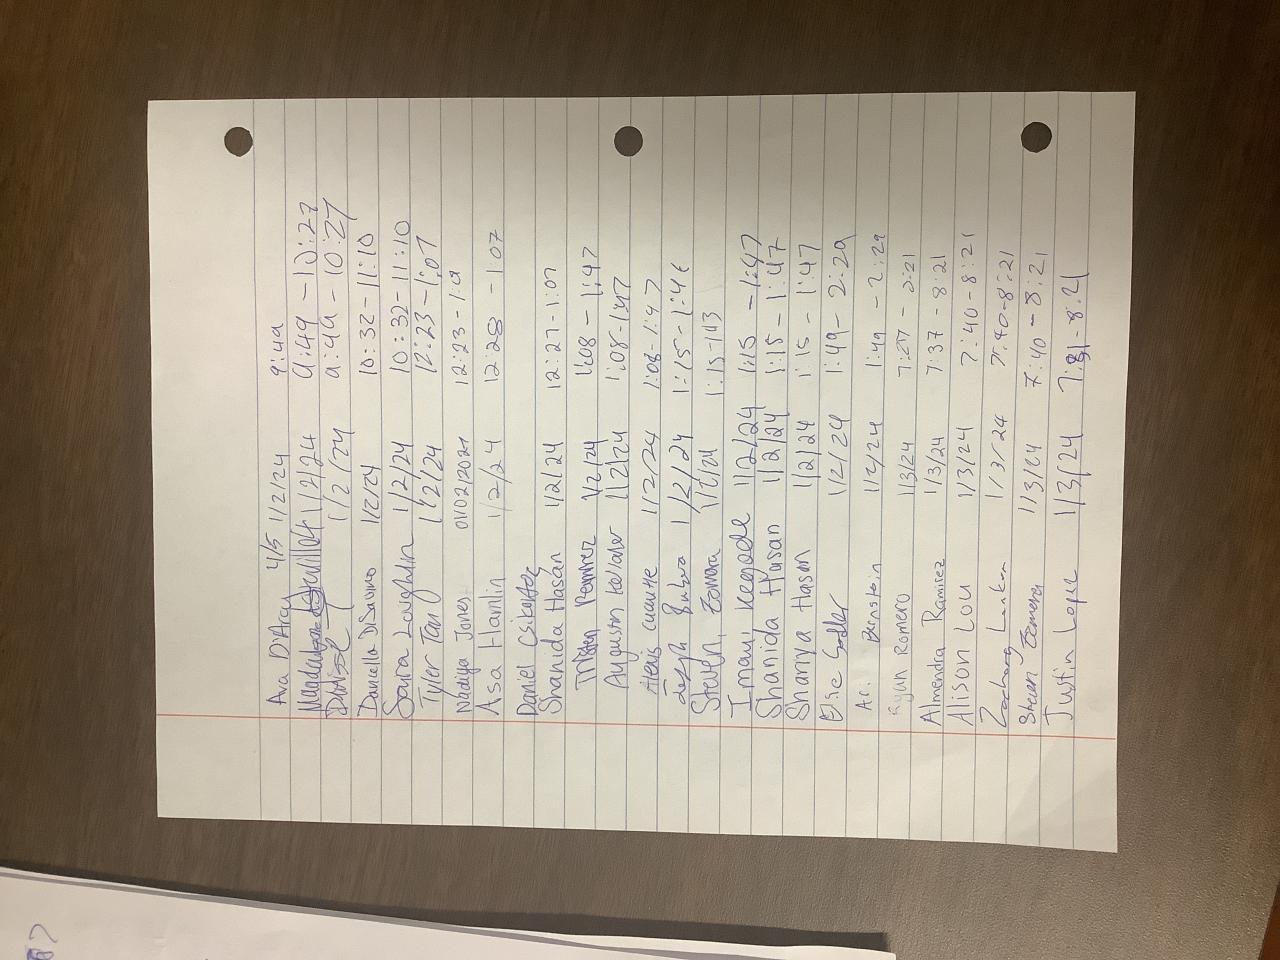 Ava D'Arcy 4/5 1/2/24 9:49
1/2/24 9:49 - 10:27
Denise 1/2/24 9:49 - 10:27
Daniella DiSavino 1/2/24 10:32 - 11:10
Saira Loughlin 1/2/24 10:32 - 11:10
Tyler Tan 1/2/24 12:23 - 1:07
Nadiya Jones 01/02/2024 12:23 - 1:0
Asa Hamlin 1/2/24 12:28 - 1:07
Daniel
Shanida Hasan 1/2/24 12:27 - 1:07
1/2/24 1:08 - 1:47
Augustin 1/2/24 1:08 - 1:47
Alexis 1/2/24 1:08 - 1:47
1/2/24 1:15 - 1:46
Steven Zamora 1/2/24 1:15 - 1:43
Imani 1/2/24 1:15 - 1:47
Shanida Hasan 1/2/24 1:15 - 1:47
Shaniya Hasan 1/2/24 1:15 - 1:47
1/2/24 1:49 - 2:29
Ari Bernstein 1/2/24 1:49 - 2:29
Ryan Romero 1/3/24
Almendra Ramirez 1/3/24 7:37 - 8:21
Alison Lou 1/3/24 7:40 - 8:21
Zachary 1/3/24 7:40 - 8:21
Steven Zamora 1/3/24 7:40 - 8:21
Justin Lopez 1/3/24 8:21